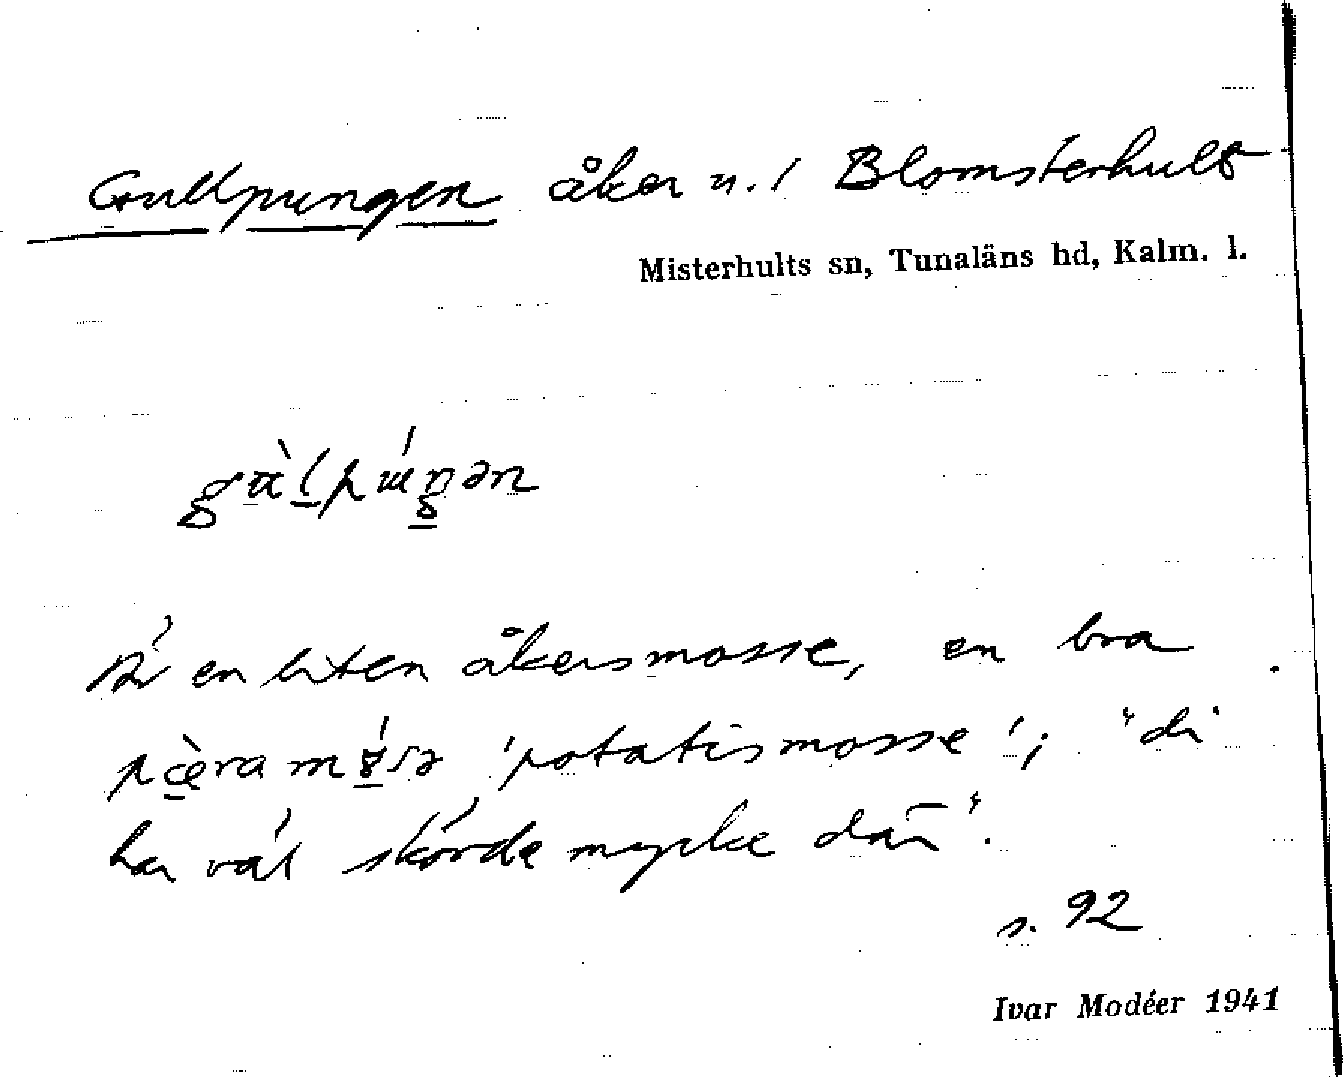 Gullpungen åker u. / Blomsterhult
Misterhults sn, Tunaläns hd, Kalm. l.
Är en liten åkersmosse, en bra
'potatismosse'; "di
ha väl skörde mycke där".
s. 92
Ivar Modéer 1941